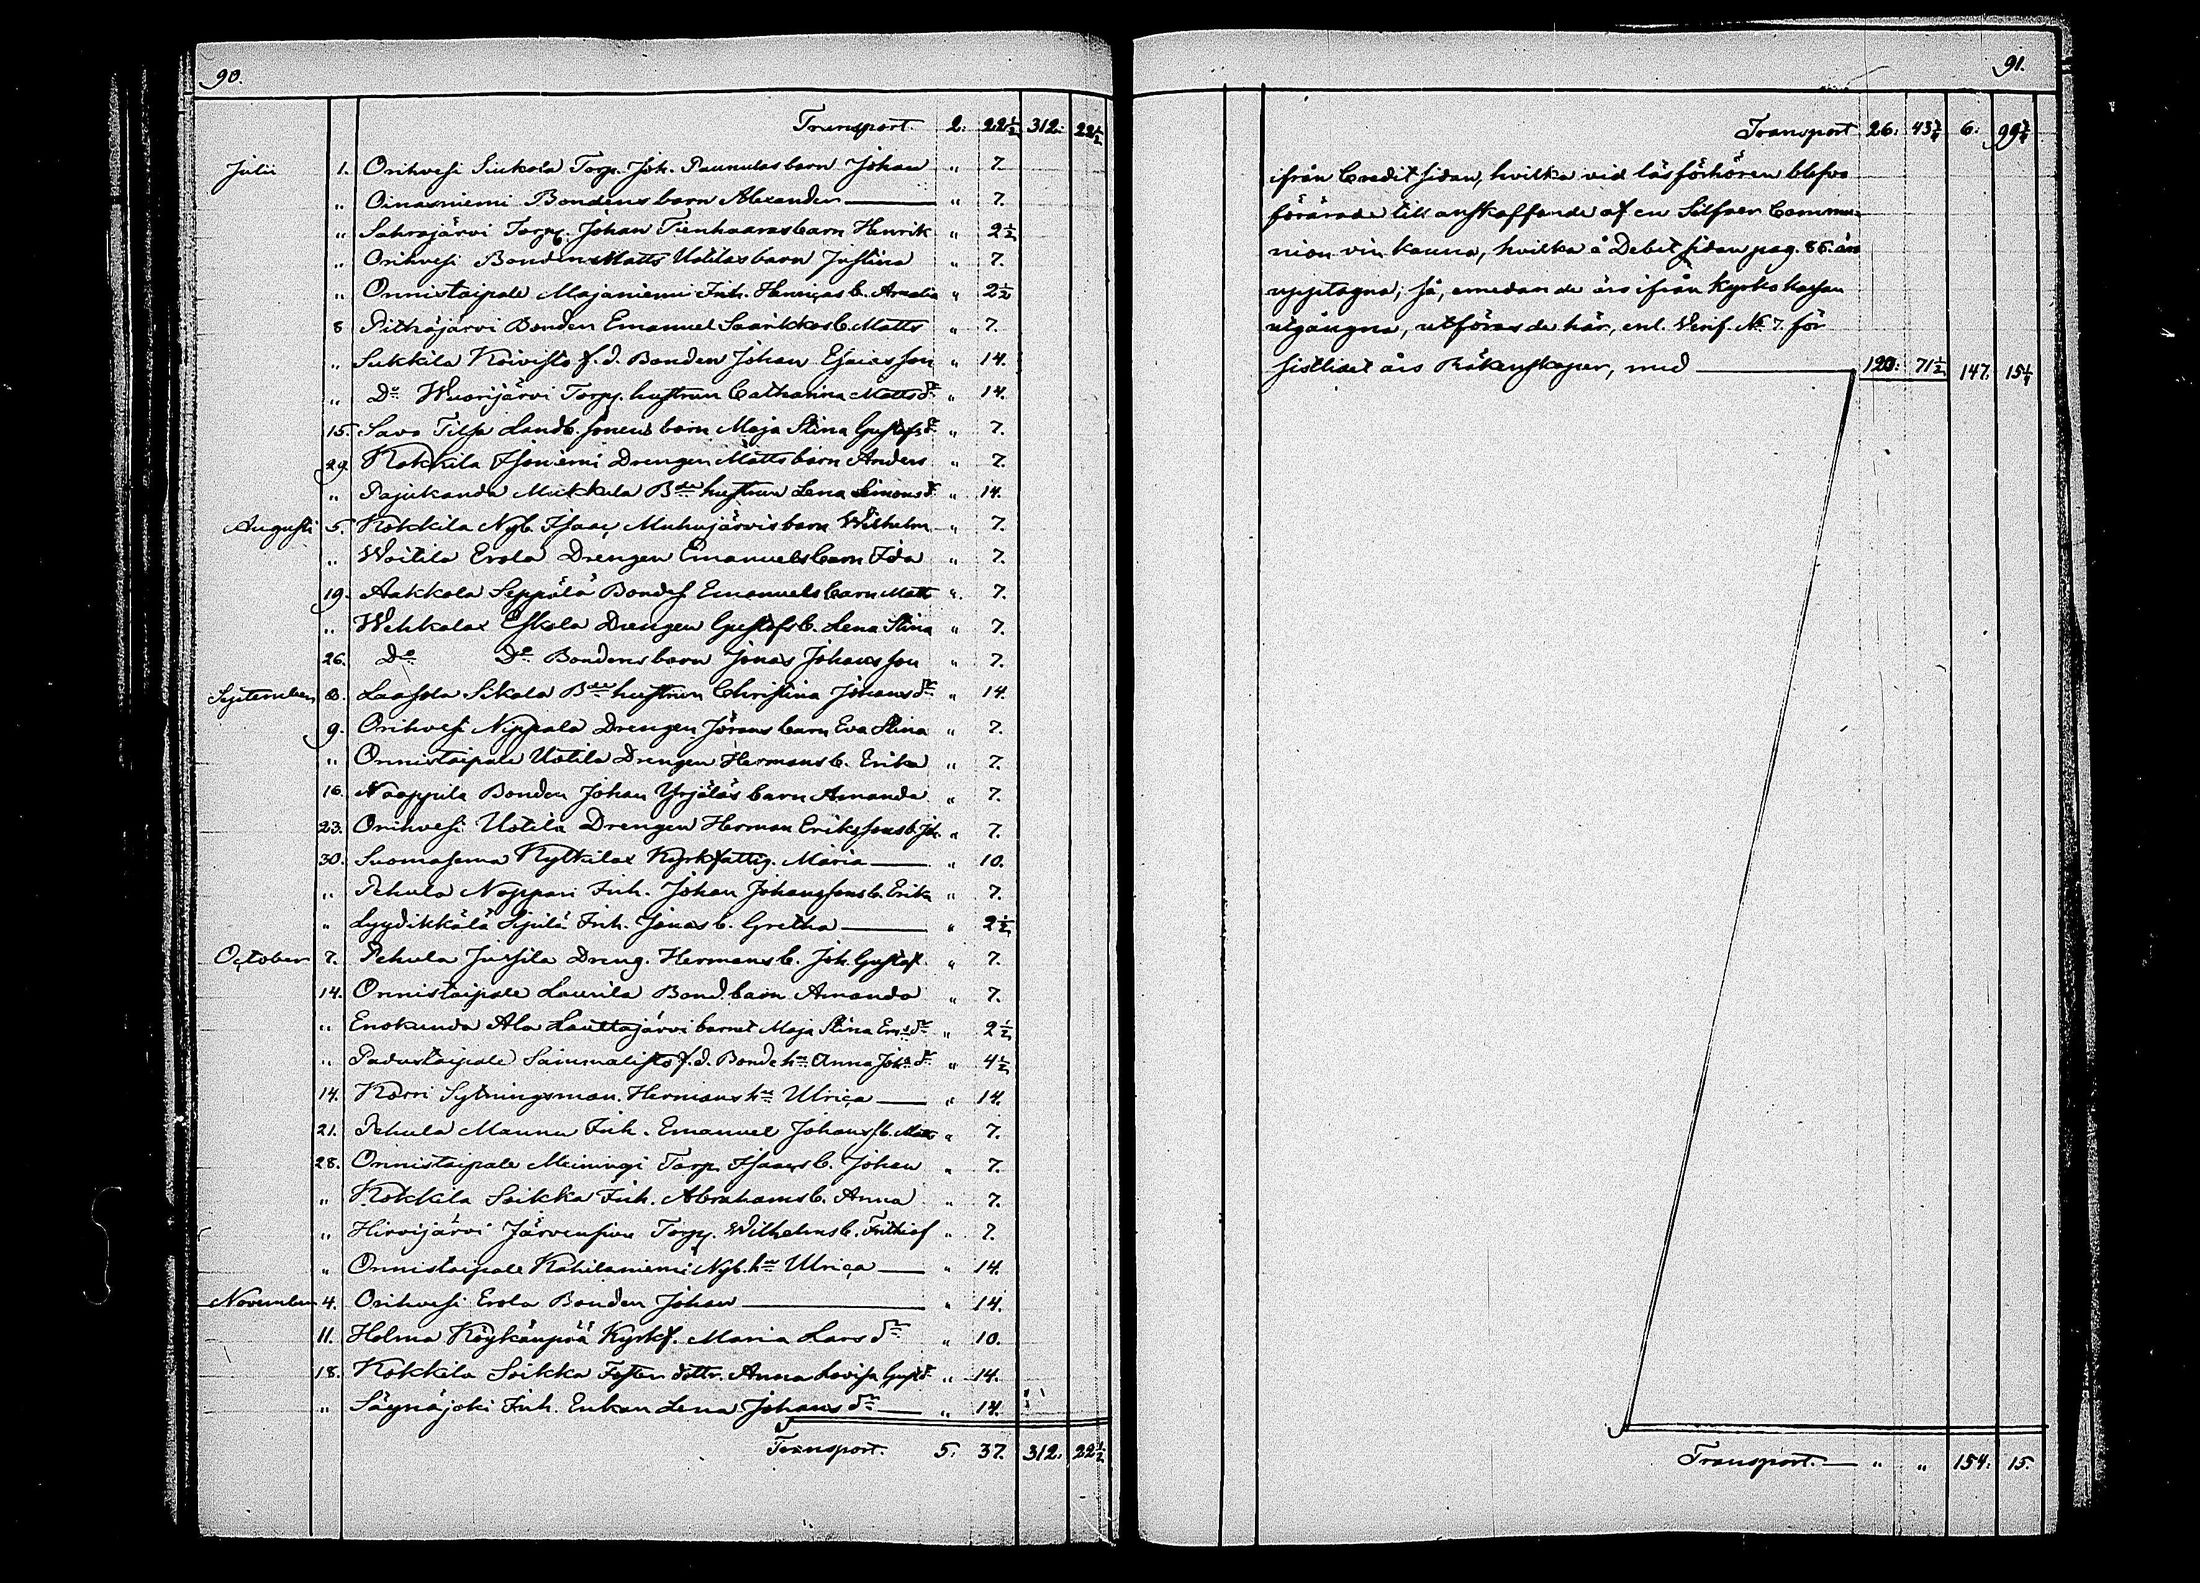 90.
Transport. 2. 22½ 312. 22½
Julii 1. Orihvesi Siukola Torp. Joh. Paunulas barn Johan " 7.
" Oinasniemi Bondens barn Alexander " 7.
" Sahrajärvi Torp. Johan Tienhaaras barn Henrik " 2½
" Orihvesi Bonden Matts Uotilas barn Justina " 7.
" Onnistaipale Majaniemi Inh. Henrics b. Amalia " 2½
8 Pitkäjärvi Bonden Emanuel Saarikkos b. Matts " 7.
" Sukkila Koivisto f. d. Bonden Johan Esaiasson " 14.
" Do Wuorijärvi Torp. hustrun Catharina Mattsdr " 14.
15. Savo Tilsa Landb. sonens barn Maja Stina Gustafsdr " 7.
29. Kokkila Isoniemi Drengen Matts barn Anders " 7.
" Pajukanda Mickkela Bde hustrun Lena Simonsdr " 14.
Augusti 5. Kokkila Nyb. Isaac Muhujärvis barn Wilhelm " 7.
" Woitila Erola Drengen Emanuels barn Ida " 7.
19. Aakkola Seppälä Bondes Emanuels barn Matts " 7.
" Wehkalax Eskola Drengen Gustafs b. Lena Stina " 7.
26. Do Do Bondens barn Jonas Johansson " 7.
September 8. Laasola Sikala Bde hustrun Christina Johansdr " 14.
9. Orihvesi Nippala Drengen Jörans barn Eva Stina " 7.
" Onnistaipale Uotila Drengen Hermans b. Erika " 7.
16. Naappila Bonden Johan Yrjäläs barn Amanda " 7.
23. Orihvesi Uotila Drengen Herman Erikssons b. Joh. " 7.
30. Suomasema Kylkilax Kyrkfattig. Maria " 10.
" Pehula Noppari Inh. Johan Johanssons b. Erika " 7.
" Lyydikkälä Sipilä Inh. Jonas b. Gretha " 2½
October 7. Pehula Jussila Dreng. Hermans b. Joh. Gustaf " 7.
14. Onnistaipale Laurila Bond. barn Amanda " 7.
" Enokunda Ala Lauttajärvi barnet Maja Stina dr " 2½
" Padustaipale Sammalisto f. d. Bonde hu Anna Johsdr " 4½
14. Karri Sytningsman. Hermans hu Ulrica " 14.
21. Pehula Mannu Inh. Emanuel Johans b. Matts " 7.
28. Onnistaipale Meiningi Torp. Isaacs b. Johan " 7.
" Kokkila Soikka Inh. Abrahams b. Anna " 7.
" Hirvijärvi Järvensivu Torp. Wilhelms b. Frithiof " 7.
" Onnistaipale Kahilaniemi Nyb. hu Ulrica " 14.
November 4. Orihvesi Erola Bonden Johan " 14.
11. Holma Köykänpää Kyrkf. Maria Larsdr " 10.
18. Kokkila Soikka Foster dottr. Anna Lovisa Gustd. " 14.
" Säynäjoki Inh. Enkan Lena Johansdr " 14.
Transport. 5. 37. 312. 22½
91.
Transport 26. 43¾ 6. 99¾
ifrån Creditsidan, hvilka vid läsförhören blefvo
förärade till anskaffande af en Silfver Commu-
nion vin kanna, hvilka å Debetsidan pag. 86. äro
upptagna; så, emedan de äro ifrån Kyrko kassan
utgångna, utföras de här, enl. Verif. No 7. för
sistlidet års Räkenskaper, med 120. 71½ 147. 15¼
Transport. " " 154. 15.